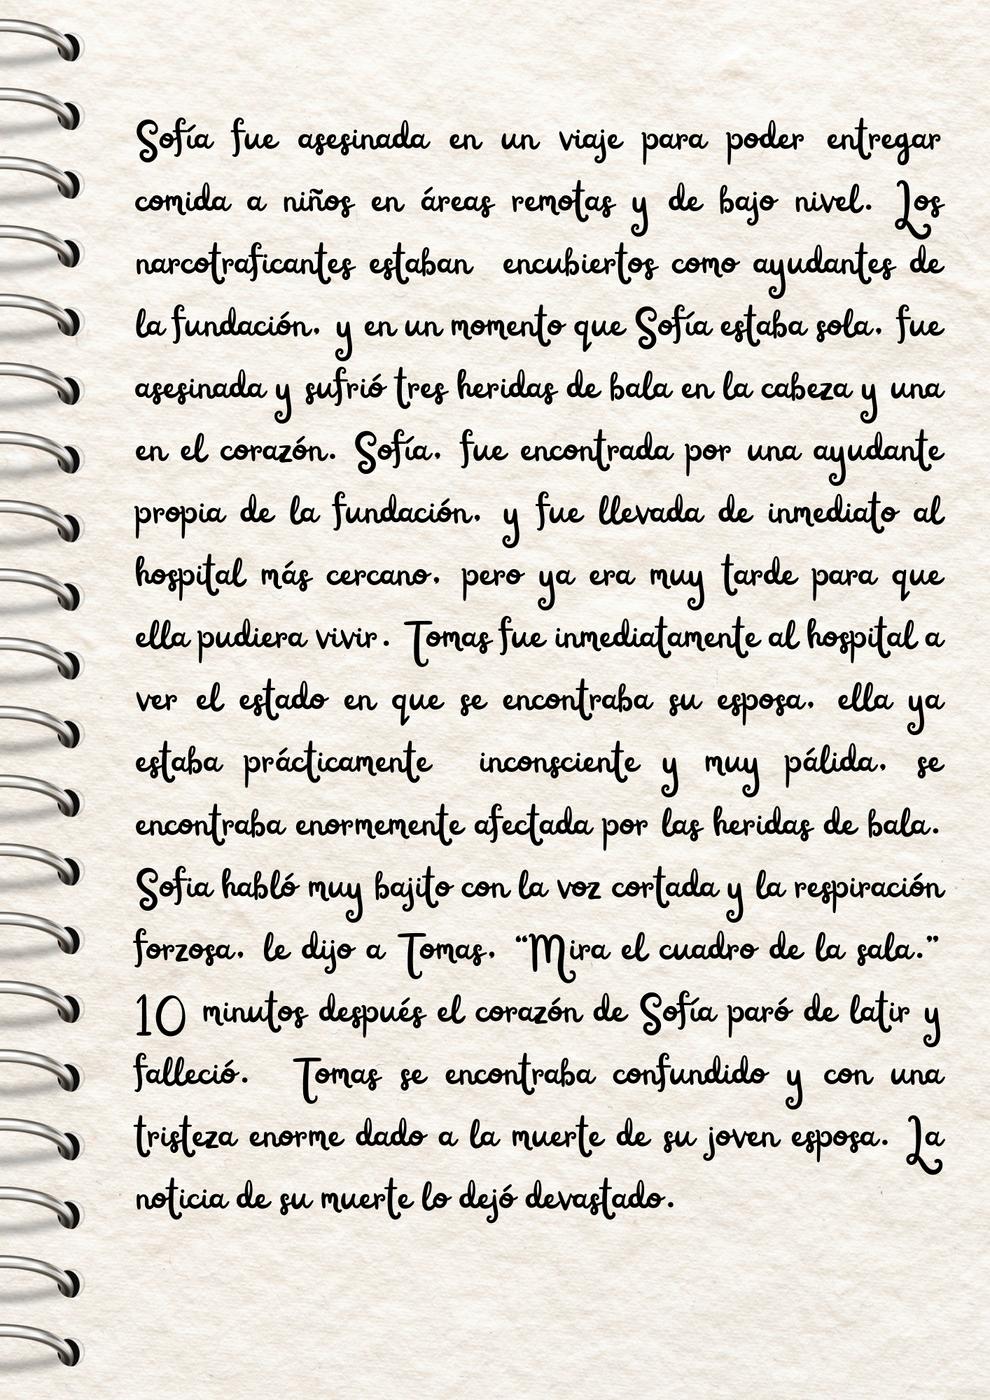 Sofía fue asesinada en un viaje para poder entregar
comida a niños en áreas remotas y de bajo nivel. Los
narcotraficantes estaban encubiertos como ayudantes de
la fundación, y en un momento que Sofía estaba sola, fue
asesinada y sufrió tres heridas de bala en la cabeza y una
en el corazón. Sofía, fue encontrada por una ayudante
propia de la fundación, y fue llevada de inmediato al
hospital más cercano, pero ya era muy tarde para que
ella pudiera vivir. Tomas fue inmediatamente al hospital a
ver el estado en que se encontraba su esposa, ella ya
estaba prácticamente inconsciente y muy pálida, se
encontraba enormemente afectada por las heridas de bala.
Sofia habló muy bajito con la voz cortada y la respiración
forzosa, le dijo a Tomas, “Mira el cuadro de la sala.”
10 minutos después el corazón de Sofía paró de latir y
falleció. Tomas se encontraba confundido y con una
tristeza enorme dado a la muerte de su joven esposa. La
noticia de su muerte lo dejó devastado.